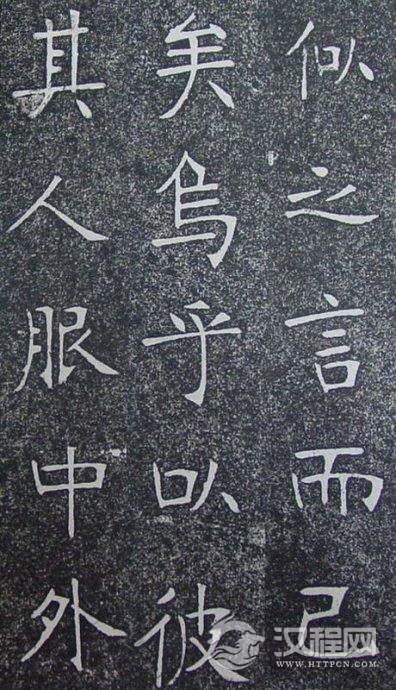 似之言而已
矣烏乎以彼
其人服中外
汉程网
WWW.HTTPCN.COM